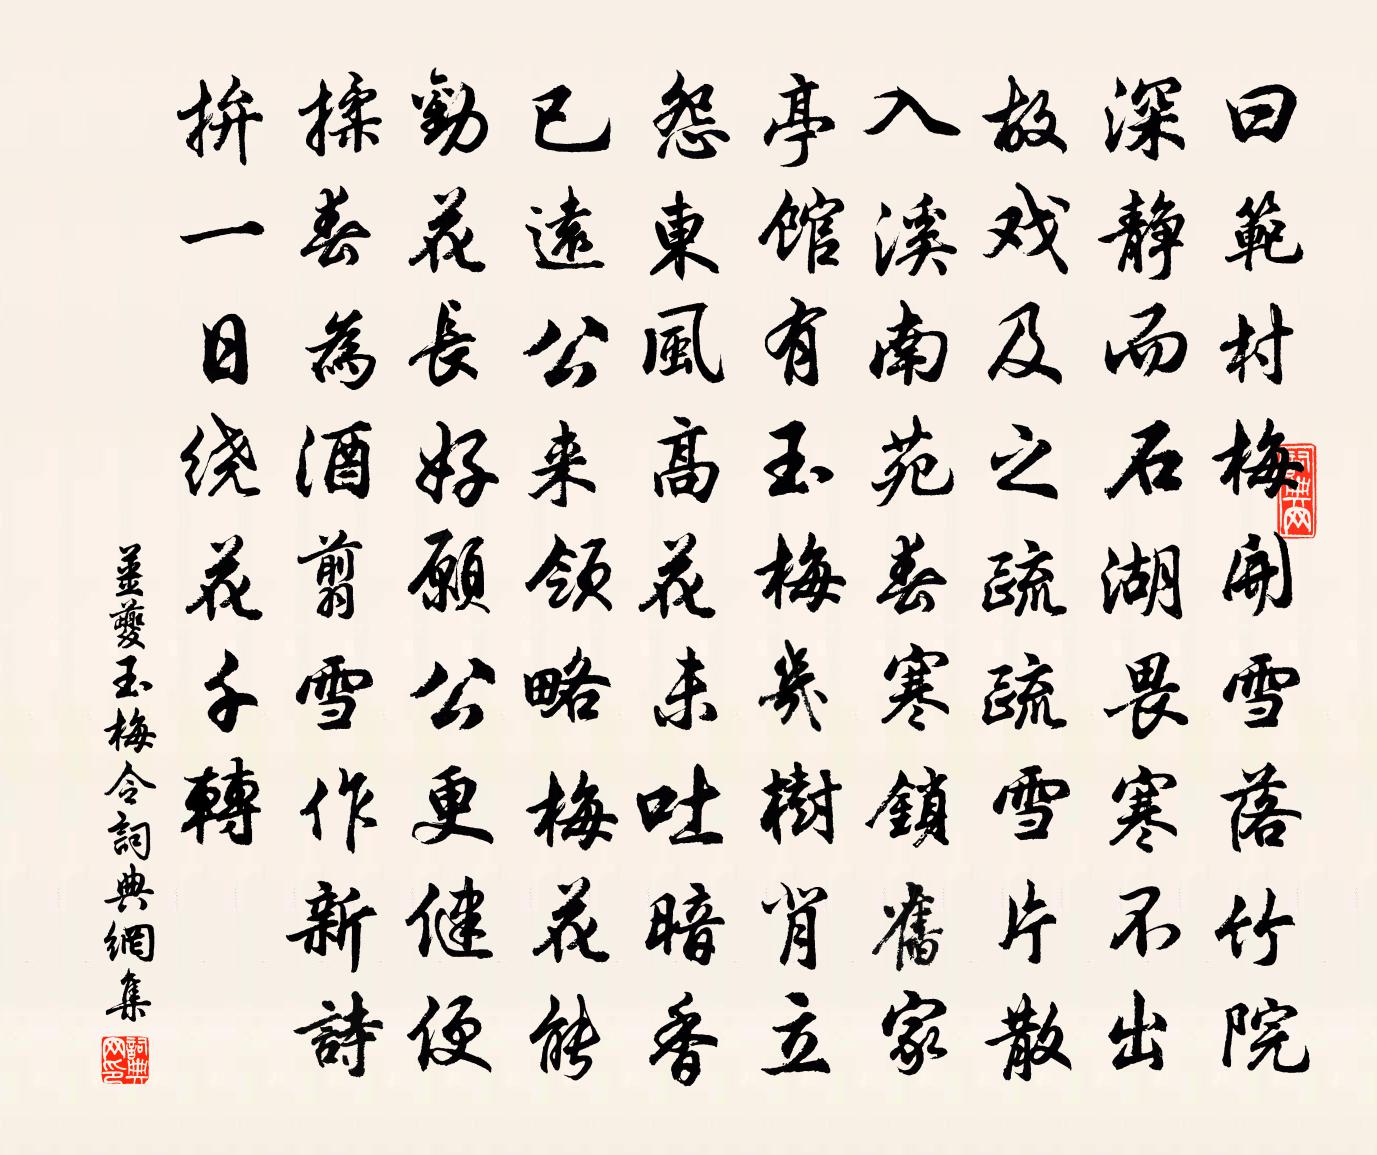 曰範村梅開雪落竹院
深靜而石湖畏寒不出
故戏及之疏疏雪片散
入溪南苑春寒鎖舊家
亭馆有玉梅幾樹肖立
怨東風高花未吐暗香
已遠公来领略梅花能
勸花長好願公更健便
揉春為酒剪雪作新詩
拚一日绕花千轉
薑夔玉梅令詞典網集
词典网
詞典网印